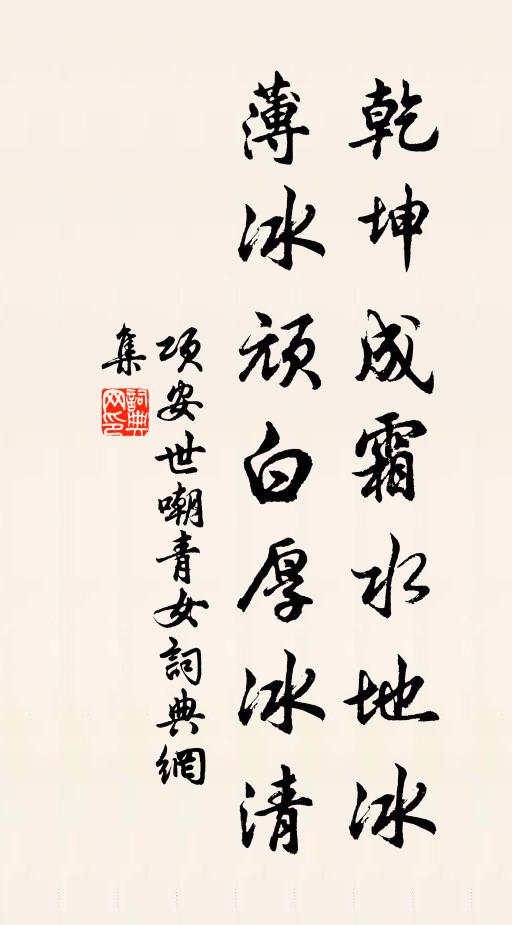 乾坤成霜水地冰
薄冰頑白厚冰清
項安世嘲青女詞典網
集
詞典
网印